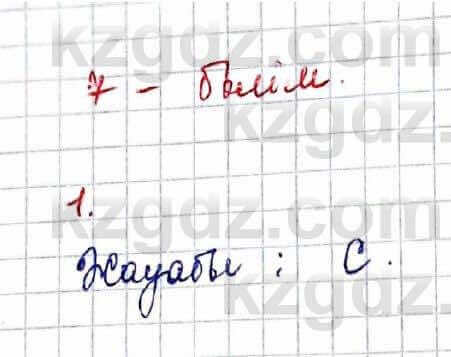 7 - бөлім.
1.
Жауабы : С.
kzgdz.com
kzgdz.com
kzgdz.com
kzgdz.com